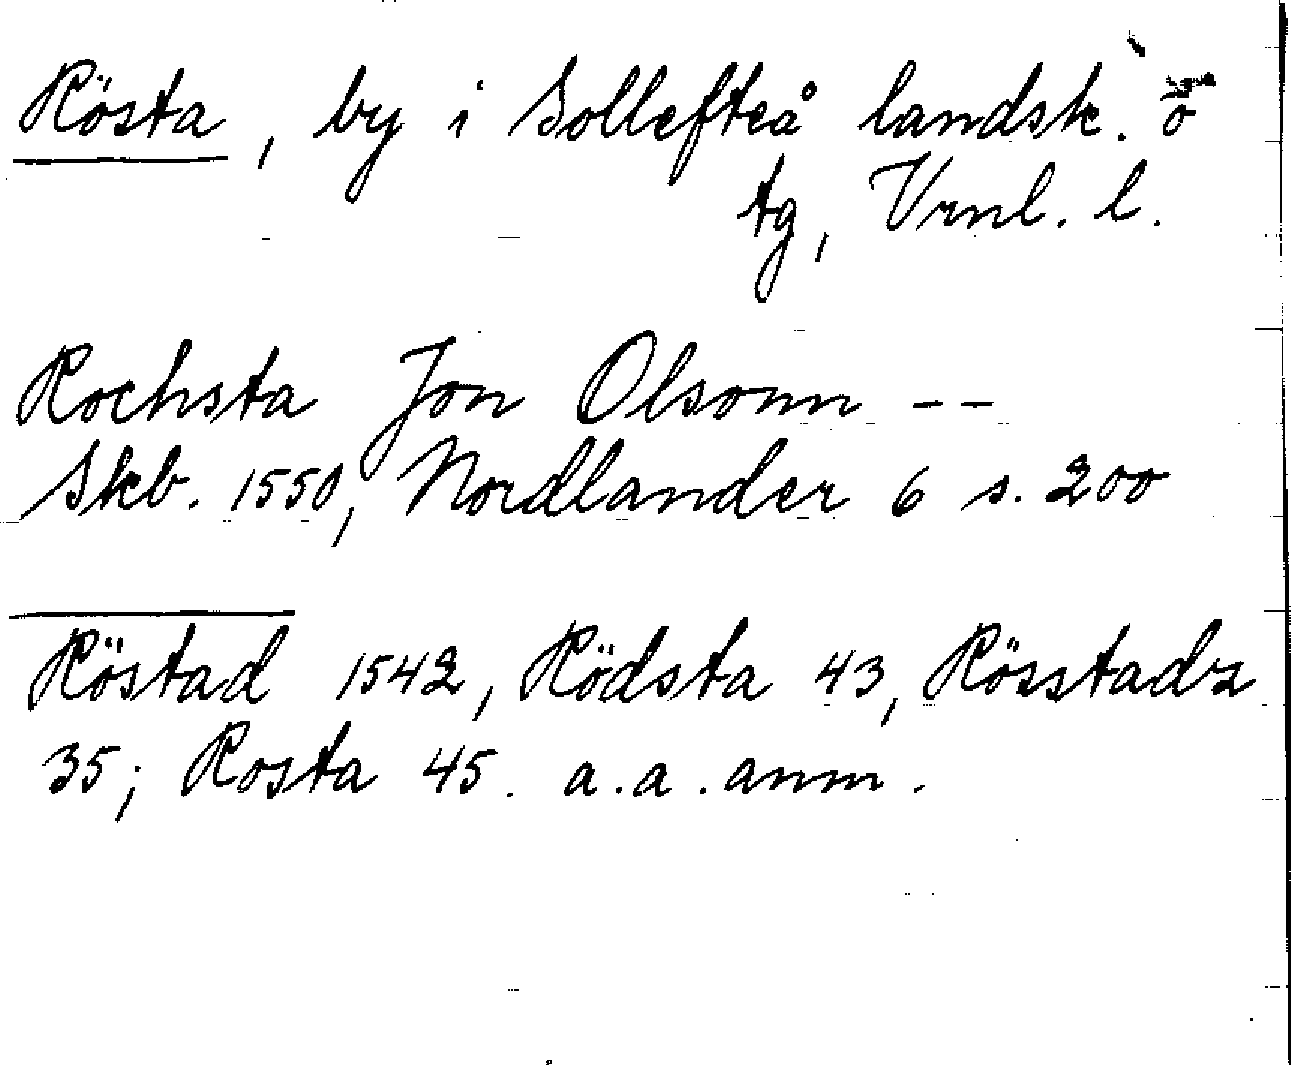 Rösta, by i Sollefteå landsk. o
tg, Vrnl. l.
Rochsta Jon Olsonn --
Skb. 1550, Nordlander 6 s. 200
Röstad 1542, Rödsta 43, Rösstadz
35; Rosta 45. a.a. anm.